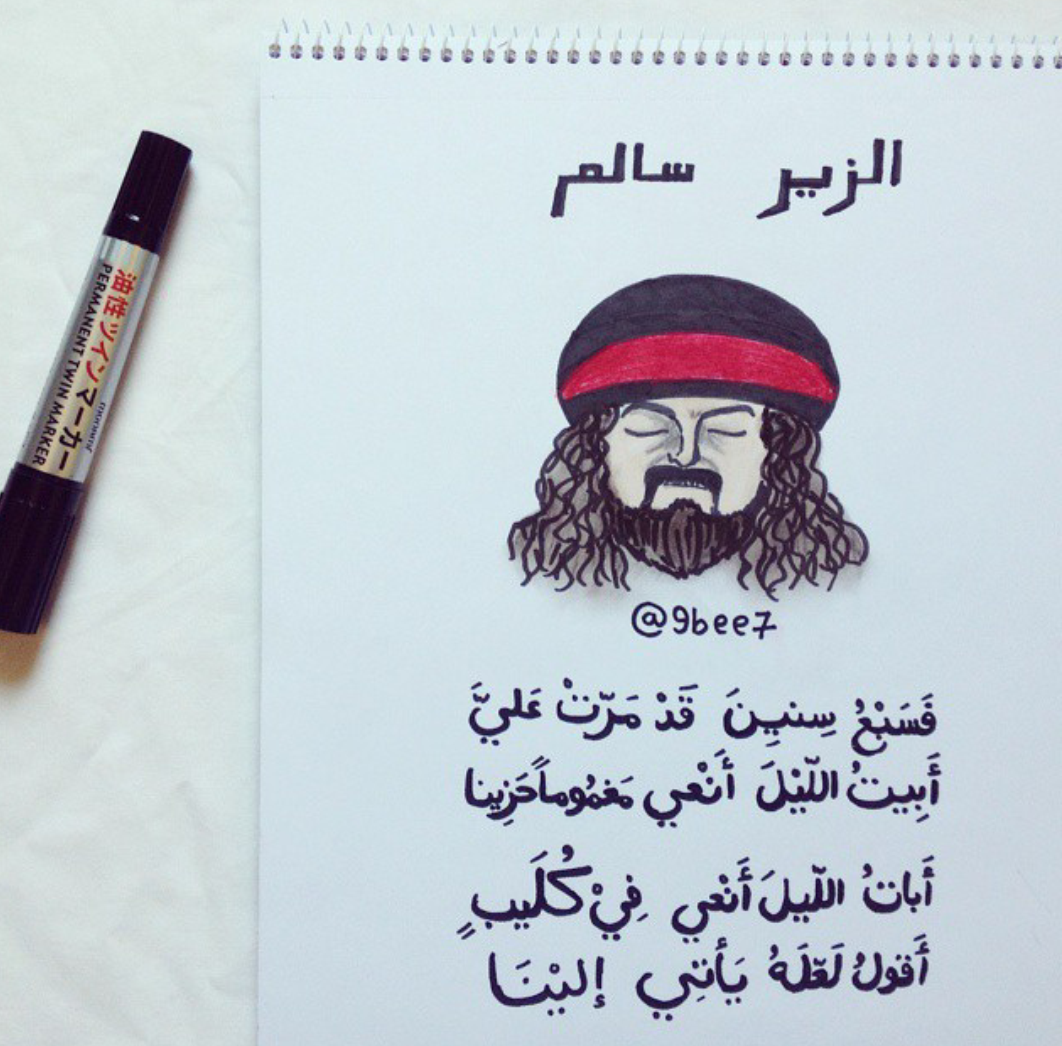 الزير سالم
@9bee7
فَسَبْعُ سِنيِنَ قَدْ مَرّتْ عَليَّ
أَبِيتُ اللّيْلَ أَنْعي مَغمُوماً حَزِينا
أَباتُ اللّيلَ أَنْعي فِيْ كُلَيبٍ
أَقولُ لَعّلَهُ يَأتِي إليْنَا
油性ツインマーカー
PERMANENT TWIN MARKER